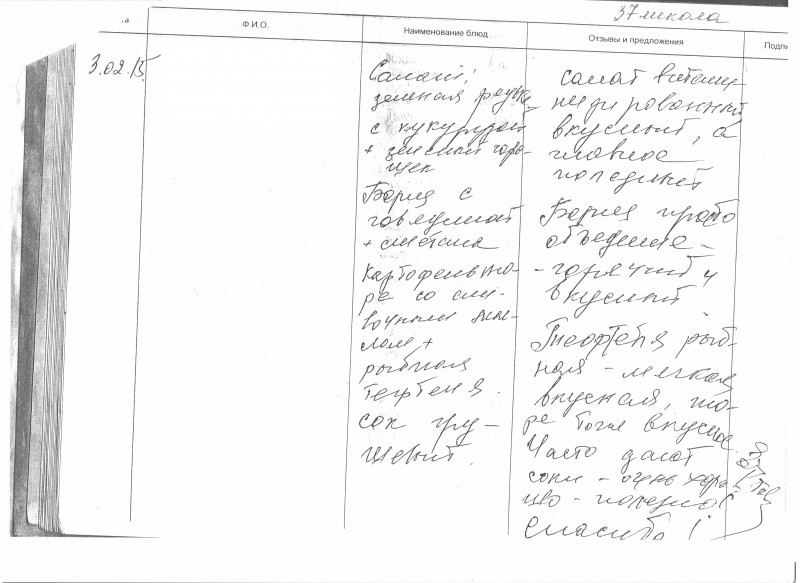 37 школа
Ф.И.О.
Наименование блюд
Отзывы и предложения
3.02.15
Салат:
зеленая редька
с кукурузой
+ зеленый горо-
шек
Борщ с
говядиной
+ сметана
картофель пю-
ре со сли-
вочным мас-
лом +
рыбная
тефтеля.
сок гру-
шевый.
салат витами-
низированный
вкусный, а
главное
полезный
Борщ просто
объедение -
- горячий и
вкусный
Тефтеля рыб-
ная - мягкая
вкусная, пю-
ре тоже вкусное.
Часто дают
соки - очень хоро-
шо - полезно!
Спасибо!